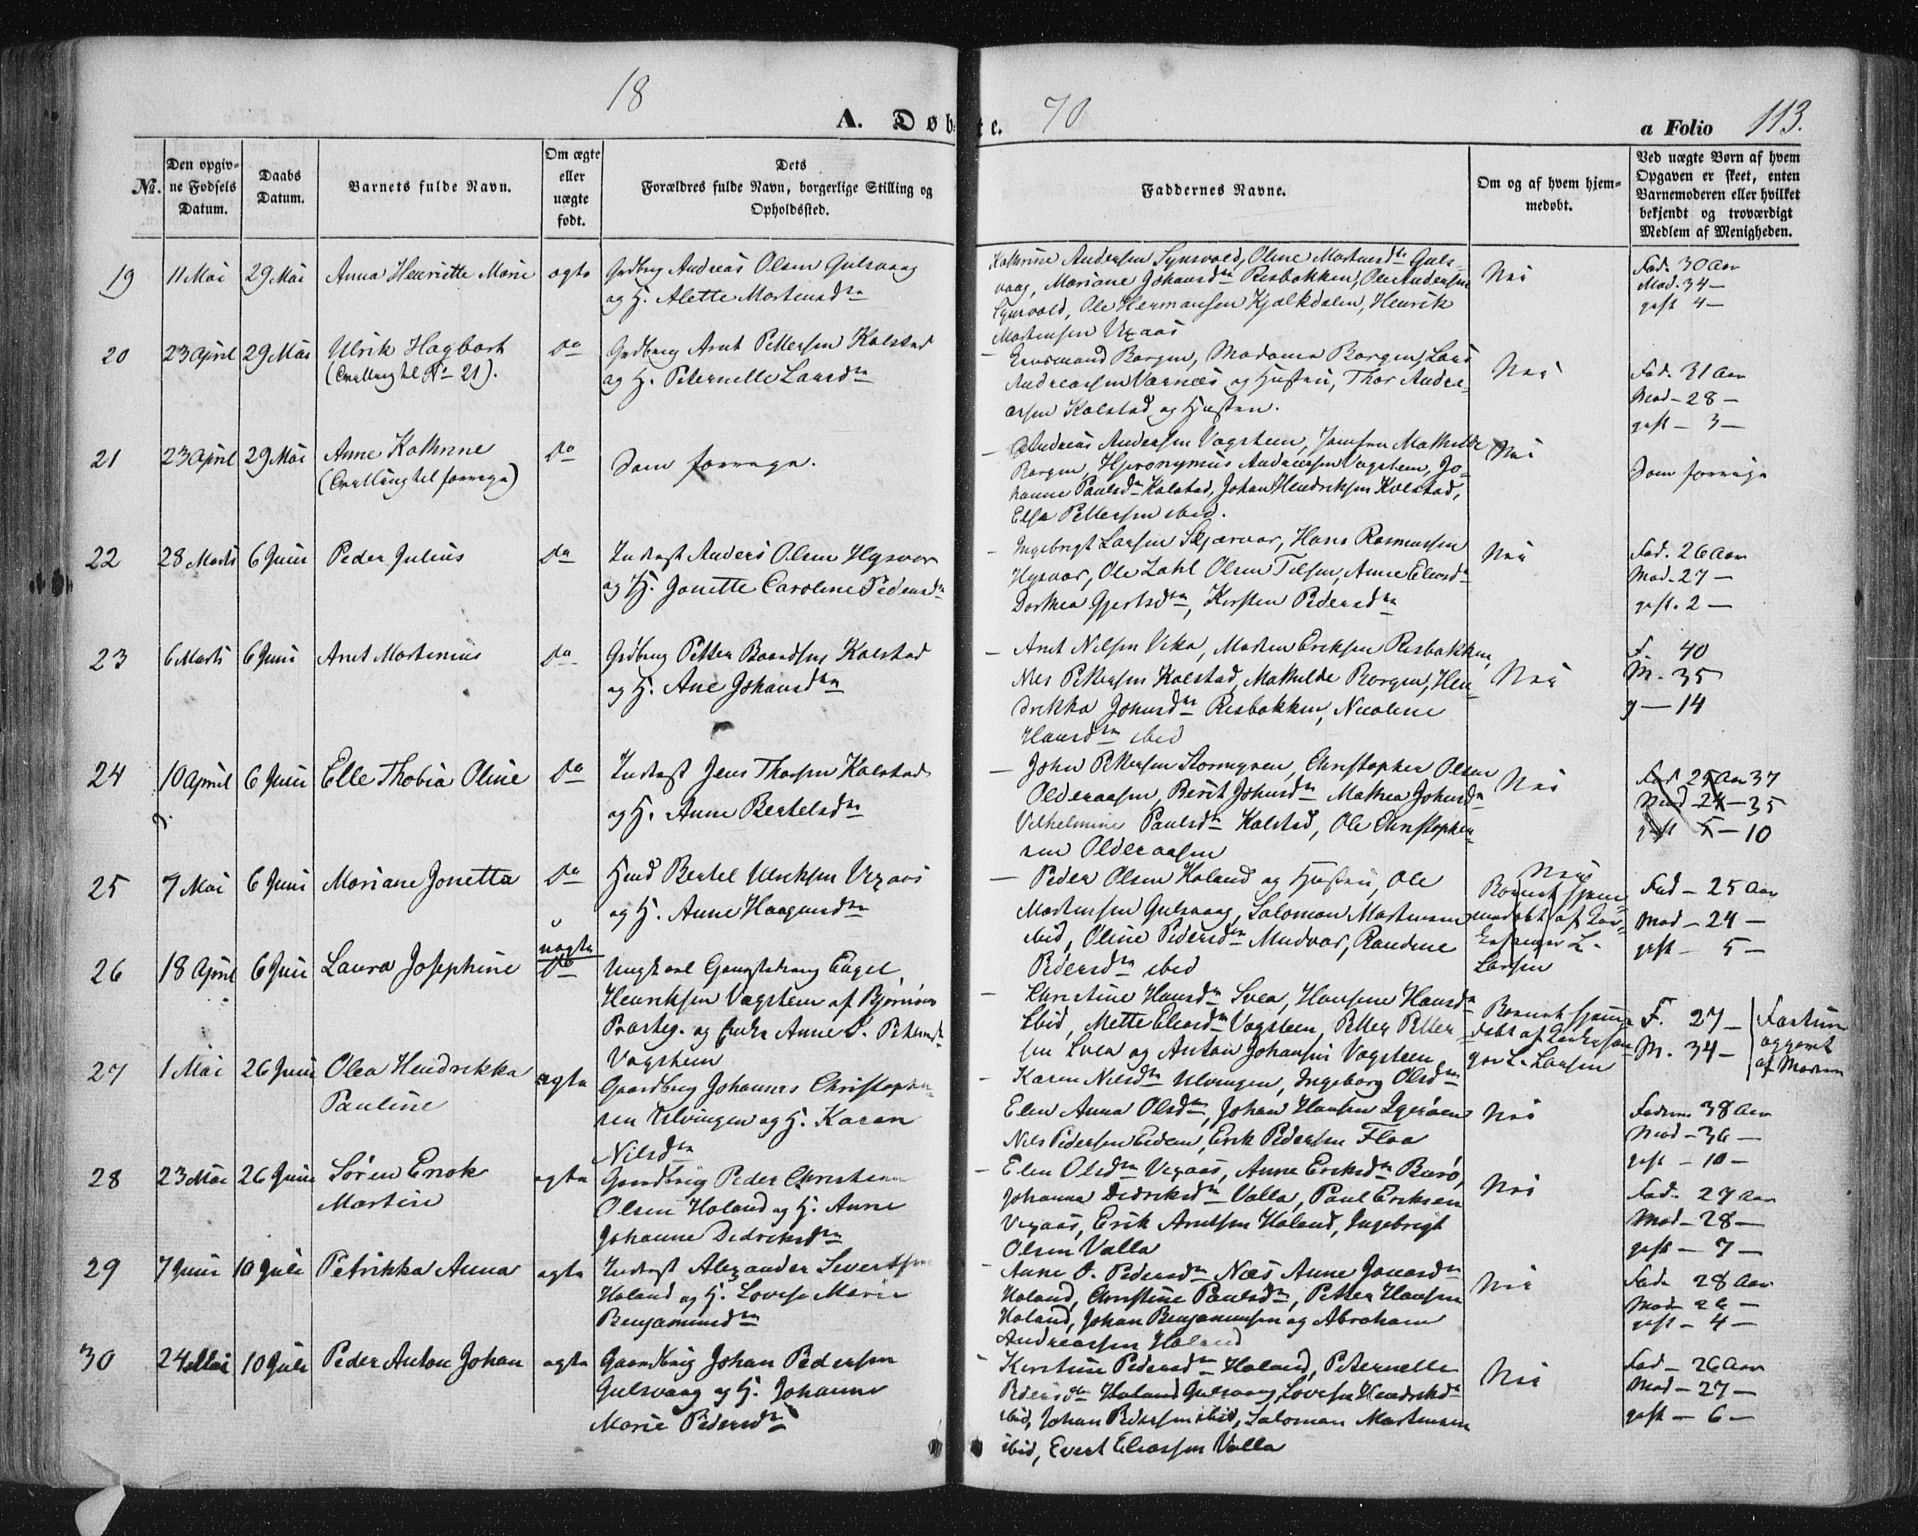 18
A. Døbte.
70
a Folio 113.
No.
Den opgiv-
ne Fødsels
Datum.
Daabs
Datum.
Barnets fulde Navn.
Om ægte
eller
uægte
født.
Dets
Forældres fulde Navn, borgerlige Stilling og
Opholdssted.
Faddernes Navne.
Om og af hvem hjem-
medøbt.
Ved uægte Børn af hvem
Opgaven er skeet, enten
Barnemoderen eller hvilket
bekjendt og troværdigt
Medlem af Menigheden.
19 11 Mai 29 Mai Anna Henriette Marie ægte
Grdbrg Andreas Olsen Gulsvaag
og H. Alette Mortensdtr
Kathrine Andersen Oline Mortensdtr Guls-
vaag, Mariane Johansdtr Risbakken, Ole Andersen
Ole Hermansen Kjelkdalen, Henrik
Mortensen
Nei
Fad. 30 Aar
Mod. 34 —
gift 4 —
20 23 April 29 Mai Ulrik Hagbart Do
(Tvilling til No 21).
Grdbrug Arnt Pettersen Kolstad
og H. Peternelle Larsdtr
Borgen, Madama Borgen, Lars
Andreassen Varnæs og Hustru, Thor Andre-
assen Kolstad og Hustru.
Nei
Fad. 31 Aar
Mod — 28 —
gift — 3 —
21 23 April 29 Mai Anne Kathrine Do
(Tvilling til forrige)
Som forrige.
Andreas Andersen Vagsteen, Jomfru Mathilde
Borgen, Hjeronymus Andersen Vagstein, Jo-
hanne Paulsdtr Kolstad, Johan Hendriksen Kolstad,
Elsa Pettersen ibid.
Nei
Som forrige
22 28 Marts 6 Juni Peder Julius Do
Inderst Anders Olsen Hysvær
og H. Jonette Caroline Pedersdtr
Ingebrigt Larsen Skjærvær, Hans Rasmussen
Hysvær, Ole Lahl Olsen Anne Eliasdtr
Dorthea Gjertsdtr, Kirsten Pedersdtr
Nei
Fad. 26 Aar
Mod — 27 —
gift. 2 —
23 6 Marts 6 Juni Arnt Martinius Do
Grdbrug Petter Baardsen Kolstad
og H. Ane Johansdtr
— Arnt Nilsen Vika, Morten Eriksen Risbakken,
Nils Pettersen Kolstad, Mathilde Borgen, Hen-
drikka Johnsdtr Risbakken, Nicoline
Hansdtr ibid
Nei
F. 40
M. 35
g — 14
24 10 April 6 Juni Elle Thobia Oline Do
Inderst Jens Thorsen Kolstad
og H. Anne Bertelsdtr
— John Pettersen Stormyren, Christopher Olsen
Olderaasen, Berit Johnsdtr Mathea Johnsdtr
Vilhelmine Paulsdtr Kolstad, Ole Christopher-
sen Olderaasen
Nei
Fad 25 Aar 37
Mod — 24 — 35
gift 5 — 10
25 7 Mai 6 Juni Mariane Jonetta Do
Bertel Ulriksen
og H. Anne Haagensdtr
— Peder Olsen Holand og Hustru, Ole
Mortensen Gulsvaag, Salomon Mortensen
ibid, Oline Pedersdtr Mudvær, Randine
Pedersdtr ibid
Nei
Barnet hjem-
medøbt af
L.
Larsen
Fad — 25 Aar
Mod — 24 —
gift — 5 —
26 18 April 6 Juni Laura Josephine uægte Do
Ungkarl Engel
Henriksen Vagsteen af Bjørnøer
Præsteg. og Anne P.
Vagsteen
— Christine Hansdtr Svea, Hansine Hansdtr
ibid, Mette Eliasdtr Vagsteen, Petter Petter-
sen Svea og Anton Johansen Vagsteen
Barnet hjemme-
døbt af
L. Larsen
F. 27 —
M. 34 —
opgivet
af Moderen
27 1 Mai 26 Juni Olea Hendrikka ægte
Pauline
Gaardbrug Johannes Christopher-
sen Ulvingen og H. Karen
Nilsdtr
— Karen Nilsdtr Ulvingen, Ingeborg Olsdtr
Elen Anna Olsdtr, Johan Hansen
Nils Pedersen Eidem, Erik Pedersen Floa
Nei
Faderen 38 Aar
Mod — 36 —
gift — 10 —
28 23 Mai 26 Juni Søren Enok ægte
Martin
Gaardbrug Peder Christian
Olsen Holand og H. Anne
Johanne Didriksdtr
— Elen Olsdtr Anne Eriksdtr Burø,
Johanna Didriksdtr Valla, Paul Eriksen
Erik Arntsen Holand, Ingebrigt
Olsen Valla
Nei
Fad. 27 Aar
Mod — 28 —
gift — 7 —
29 7 Juni 10 Juli Petrikka Anna ægte
Inderst Alexander Sivertsen
Holand og H. Lovise Marie
Benjaminsdtr
Anne O. Pedersdtr Næs Anne Jonasdtr
Holand, Christine Paulsdtr, Petter Hansen
Holand, Johan Benjaminsen og Abraham
Andreassen Holand
Nei
Fad. 28 Aar
Mod — 26 —
gift — 4 —
30 24 Mai 10 Juli Peder Anton Johan ægte
Gaardbrug Johan Pedersen
Gulsvaag og H. Johanne
Marie Pedersdtr
Kirstine Pedersdtr Holand, Peternelle
Pedersdtr Holand Gulsvaag, Lovise Hendriksdtr
ibid, Johan Pedersen ibid, Salomon Mortensen
ibid, Evert Eliassen Valla
Nei
Fad — 26 Aar
Mod — 27 —
gift — 6 —